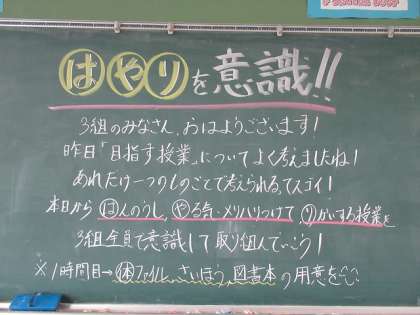 はやりを意識!!
3組のみなさん、おはようございます!
昨日「目指す授業」についてよく考えましたね!
あれだけ一つのことで考えられるってスゴイ!
本日から はんのうし、やる気・メリハリつけて、りかいする授業を
3組全員で意識して取り組んでいこう!
※1時間目→体ファイル、さいほう、図書本の用意を